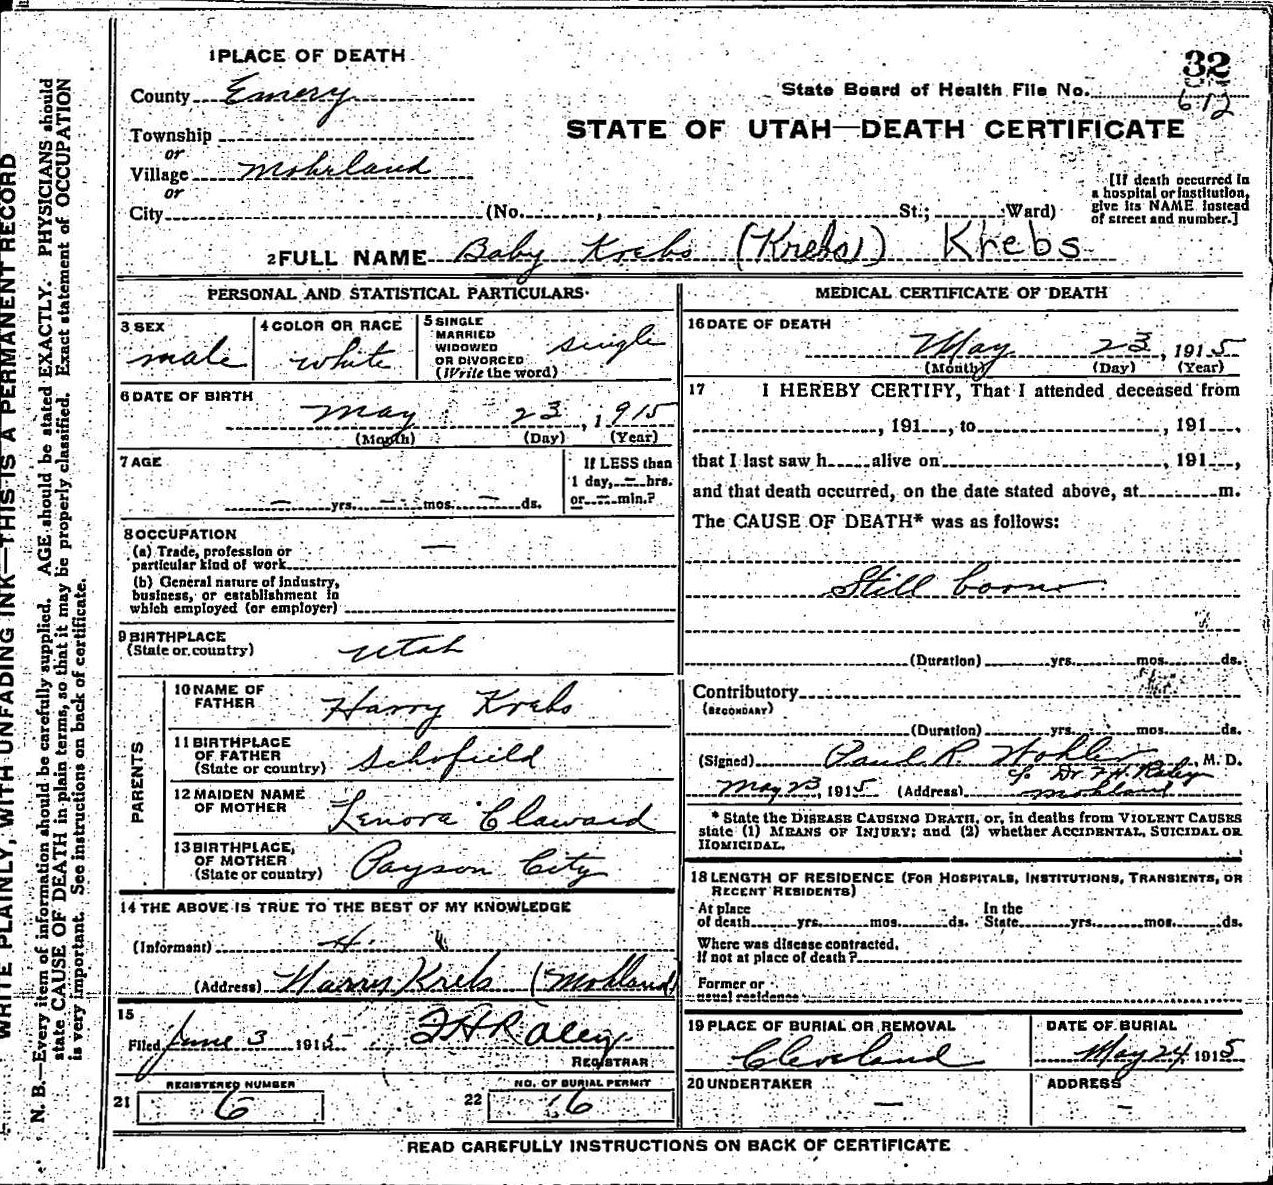 WRITE PLAINLY, WITH UNFADING INK—THIS IS A PERMANENT RECORD
N. B.—Every item of information should be carefully supplied. AGE should be stated EXACTLY. PHYSICIANS should
state CAUSE OF DEATH in plain terms, so that it may be properly classified. Exact statement of OCCUPATION
is very important. See instructions on back of certificate.
1 PLACE OF DEATH
32
County Emery
State Board of Health File No.
612
Township
STATE OF UTAH—DEATH CERTIFICATE
or
Village Mohrland
or
[If death occurred in
a hospital or institution,
give its NAME instead
of street and number.]
City (No. , St.; Ward)
2 FULL NAME Baby Krebs (Krebs) Krebs
PERSONAL AND STATISTICAL PARTICULARS
3 SEX
male
4 COLOR OR RACE
white
5 SINGLE
MARRIED
WIDOWED
OR DIVORCED
(Write the word)
single
6 DATE OF BIRTH
May 23, 1915
(Month) (Day) (Year)
7 AGE
— yrs. — mos. — ds.
If LESS than
1 day, — hrs.
or — min.?
8 OCCUPATION
(a) Trade, profession or
particular kind of work —
(b) General nature of industry,
business, or establishment in
which employed (or employer)
9 BIRTHPLACE
(State or country) Utah
PARENTS
10 NAME OF
FATHER Harry Krebs
11 BIRTHPLACE
OF FATHER
(State or country) Schofield
12 MAIDEN NAME
OF MOTHER Lenora Claward
13 BIRTHPLACE,
OF MOTHER
(State or country) Payson City
14 THE ABOVE IS TRUE TO THE BEST OF MY KNOWLEDGE
(Informant) H. "
(Address) Harry Krebs (Mohland)
15
Filed June 3 1915 F H Raley
REGISTRAR
21 REGISTERED NUMBER
6
22 NO. OF BURIAL PERMIT
16
MEDICAL CERTIFICATE OF DEATH
16 DATE OF DEATH
May 23, 1915
(Month) (Day) (Year)
17 I HEREBY CERTIFY, That I attended deceased from
, 191 , to , 191 ,
that I last saw h alive on , 191 ,
and that death occurred, on the date stated above, at m.
The CAUSE OF DEATH* was as follows:
Still born
(Duration) yrs. mos. ds.
Contributory
(SECONDARY)
(Duration) yrs. mos. ds.
(Signed) Paul R. Wohler, M. D.
c/o Dr. F. H. Raley
May 23, 1915 (Address) Mohland
* State the DISEASE CAUSING DEATH, or, in deaths from VIOLENT CAUSES
state (1) MEANS OF INJURY; and (2) whether ACCIDENTAL, SUICIDAL OR
HOMICIDAL.
18 LENGTH OF RESIDENCE (FOR HOSPITALS, INSTITUTIONS, TRANSIENTS, OR
RECENT RESIDENTS)
At place In the
of death yrs. mos. ds. State yrs. mos. ds.
Where was disease contracted,
If not at place of death?
Former or
usual residence
19 PLACE OF BURIAL OR REMOVAL
Cleveland
DATE OF BURIAL
May 24, 1915
20 UNDERTAKER
—
ADDRESS
—
READ CAREFULLY INSTRUCTIONS ON BACK OF CERTIFICATE